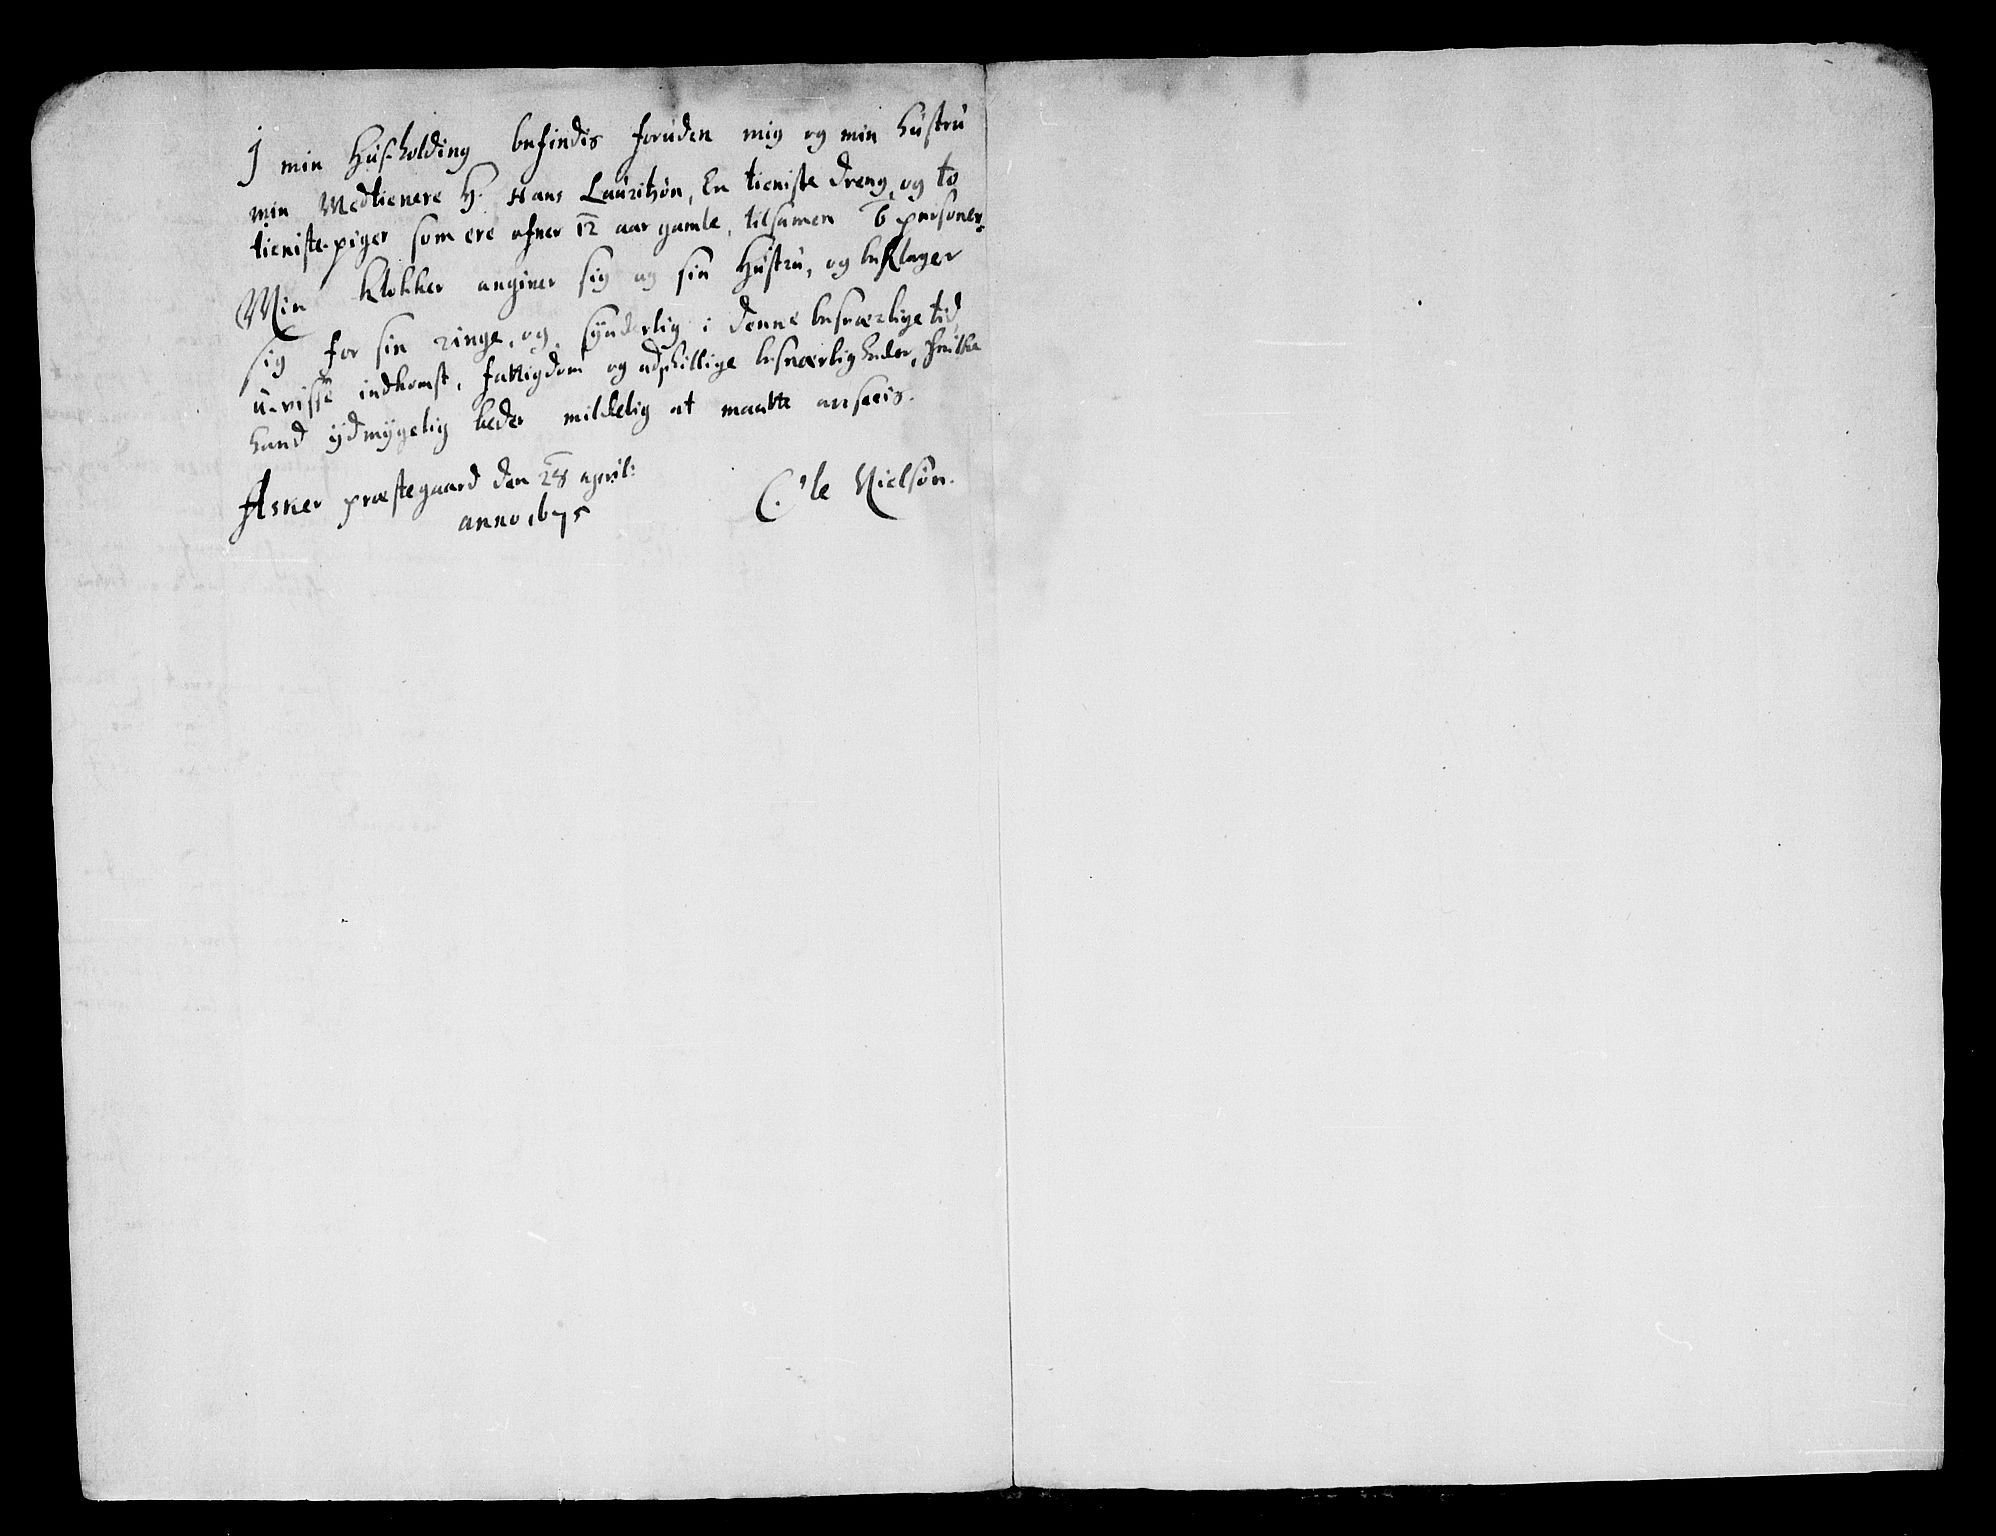 I min Hus-holding befindis foruden mig og min hustru
min Medtienere H. Hans Lauritzøn, En tieniste dreng, og to
tieniste-piger som ere ofver 12 aar gamle, tilsamen 6 personer.
Min klokker angiver sig og sin Hustru, og beklager
sig for sin ringe, og synderlig i denne besværlige tid,
u-visse indkomst, fattigdom og adskillige besværligheder, hvilke
hand ydmygelig beder mildelig at maatte ansees.
Asker præstegaard den 28 april:
anno 1675
Nielsøn.